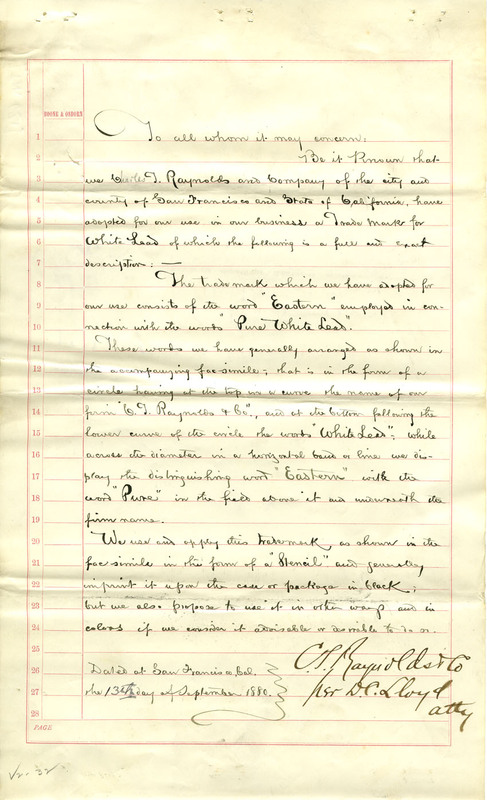 BOONE & OSBORN
1 To all whom it may concern:
2 Be it Known that
3 we Charles T. Raynolds and Company of the city and
4 county of San Francisco and State of California, have
5 adopted for our use in our business a Trade Mark for
6 White Lead of which the following is a full and exact
7 description:—
8 The trade mark which we have adopted for
9 our use consists of the word "Eastern" employed in con-
10 nection with the words "Pure White Lead".
11 These words we have generally arranged as shown in
12 the accompanying fac-simile; that is in the form of a
13 circle having at the top in a curve the name of our
14 firm "C. T. Raynolds & Co", and at the bottom following the
15 lower curve of the circle the words "White Lead"; while
16 across the diameter in a horizontal band or line we dis-
17 play the distinguishing word "Eastern" with the
18 word "Pure" in the field above it and underneath the
19 firm name.
20 We use and apply this trade mark as shown in the
21 fac simile in the form of a "Stencil" and generally
22 imprint it upon the case or package in black;
23 but we also propose to use it in other ways and in
24 colors if we consider it advisable or desirable to do so.
25 C. T. Raynolds & Co
26 Dated at San Francisco, Cal.
per D. C. Lloyd
27 the 13th day of September 1880.
atty
28
PAGE